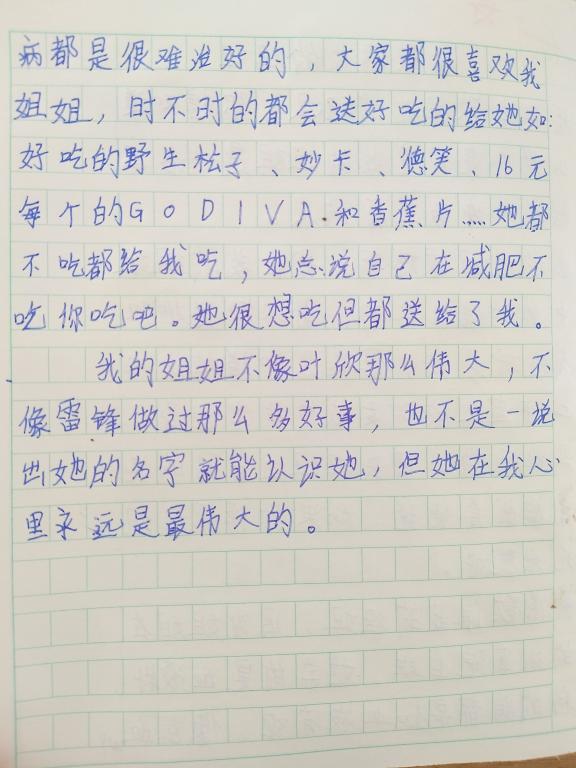 病都是很难治好的，大家都很喜欢我
姐姐，时不时的都会送好吃的给她如:
好吃的野生松子、妙卡、德芙、16元
每个的GODIVA.和香蕉片……她都
不吃都给我吃，她总说自己在减肥不
吃你吃吧。她很想吃但都送给了我。
我的姐姐不像叶欣那么伟大，不
像雷锋做过那么多好事，也不是一说
出她的名字就能认识她，但她在我心
里永远是最伟大的。